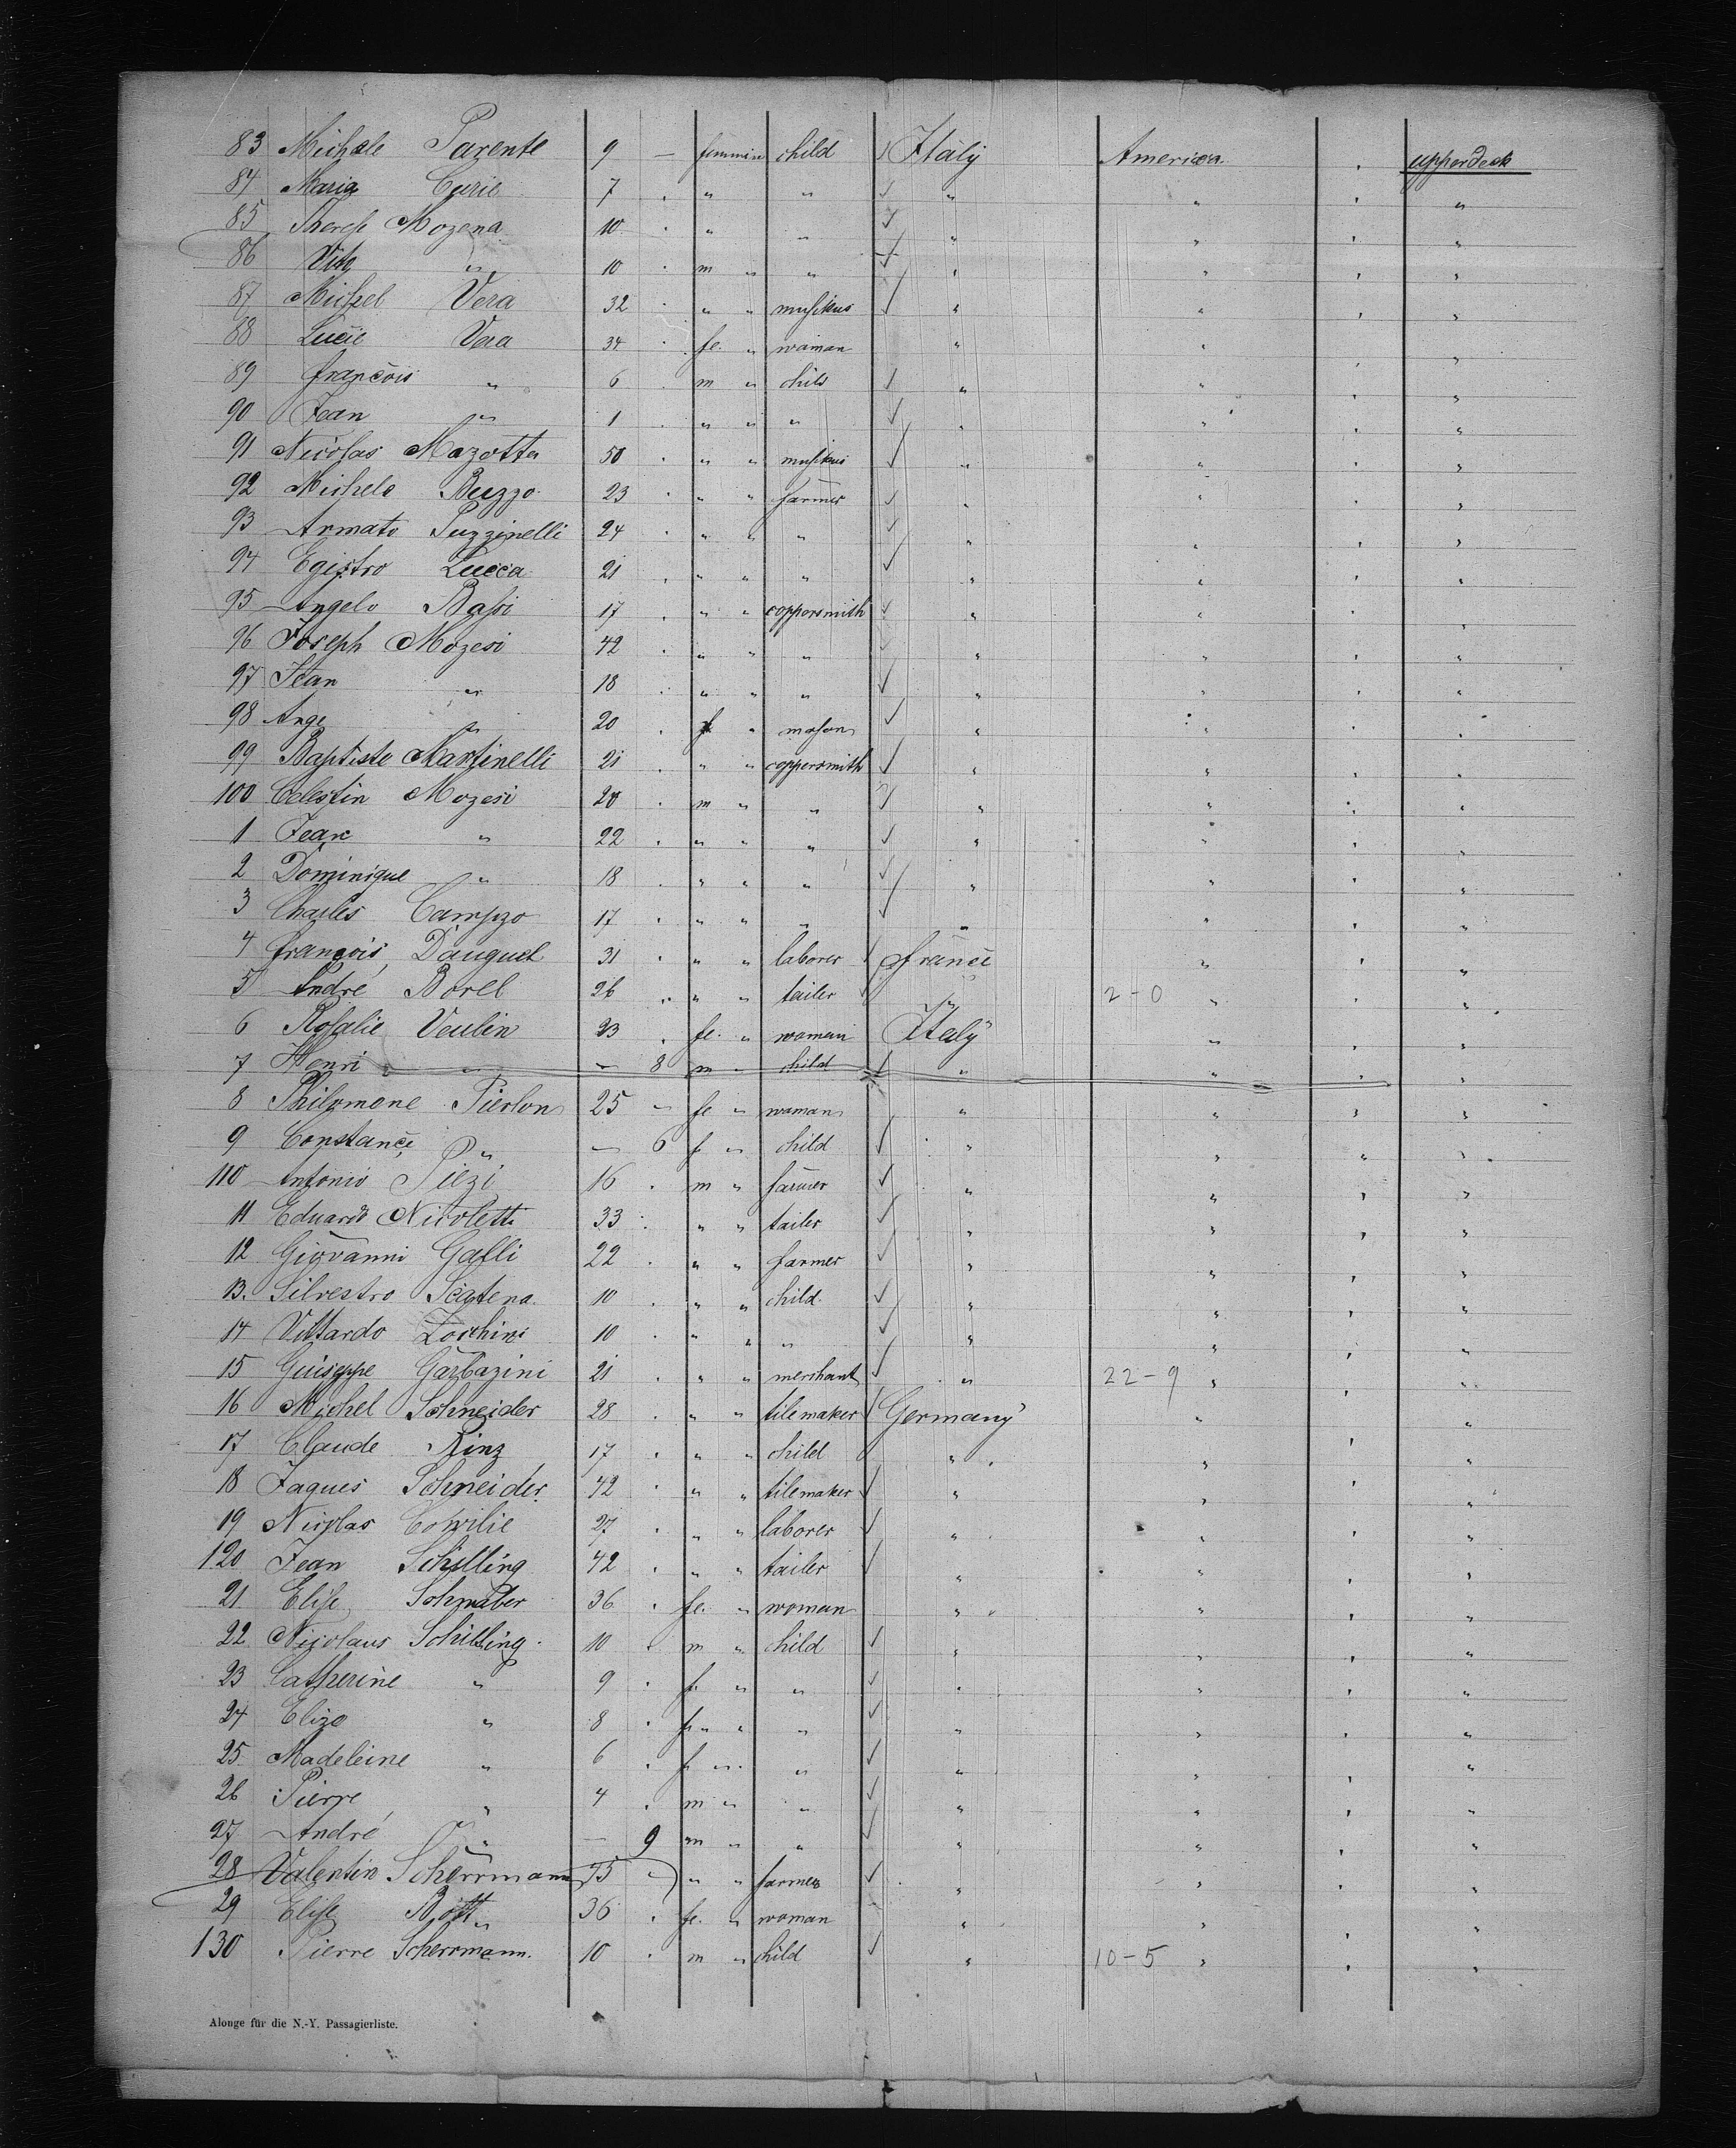 83 Michele Parente 9 — feminin child ✓ Italy America " upperdeck
84 Maria Curie 7 " " " ✓ " " " "
85 Therese Mozena 10 " " " ✓ " " " "
86 Vito " 10 " m " " ✓ " " " "
87 Michel Vera 32 " " " musikus ✓ " " " "
88 Lucie Vera 34 " fe. " woman " " " "
89 françois " 6 " m " child ✓ " " " "
90 Jean " 1 " " " " ✓ " " " "
91 Nicolas Mazotta 50 " " " musikus ✓ " " " "
92 Michele Buzzo 23 " " " farmer ✓ " " " "
93 Armato Puzzinelli 24 " " " " ✓ " " " "
94 Egistro Lucca 21 " " " " ✓ " " " "
95 Angelo Bassi 17 " " " coppersmith ✓ " " " "
96 Joseph Mozesi 42 " " " " ✓ " " " "
97 Jean " 18 " " " " ✓ " " " "
98 Ange " 20 " f " mason ✓ " " " "
99 Baptiste Martinelli 21 " " " coppersmith ✓ " " " "
100 Celestin Mozesi 20 " m " " ✓ " " " "
1 Jean " 22 " " " " ✓ " " " "
2 Dominique " 18 " " " " ✓ " " " "
3 Charles Campzo 17 " " " " ✓ " " " "
4 françois Dauguet 31 " " " laborer ✓ france " " "
5 André Borel 26 " " " tailer ✓ " 2-0 " " "
6 Rosalie Veulin 23 " fe. " woman Italy " " "
7 Henri " — 8 m " child ✓ " " " "
8 Philomene Pierlon 25 " fe " woman " " " "
9 Constance " — 6 f " child ✓ " " " "
110 Antonio Piezi 16 " m " farmer ✓ " " " "
11 Eduard Nicoletti 33 " " " tailer ✓ " " " "
12 Giovanni Galli 22 " " " farmer ✓ " " " "
13. Silvestro Scatena 10 " " " child ✓ " " " "
14 Vittardo Zocchini 10 " " " " ✓ " " " "
15 Guiseppe Garbazini 21 " " " merchant ✓ " 22-9 " " "
16 Michel Schneider 28 " " " tilemaker ✓ Germany " " "
17 Claude Rinz 17 " " " child " " " "
18 Jaques Schneider 42 " " " tilemaker ✓ " " " "
19 Nicolas 27 " " " laborer ✓ " " " "
120 Jean Schilling 42 " " " tailer ✓ " " " "
21 Elise Schwaber 36 " fe. " woman " " " "
22 Nicolaus Schilling 10 " m " child ✓ " " " "
23 Catherine " 9 " f " " ✓ " " " "
24 Elize " 8 " f " " ✓ " " " "
25 Madeleine " 6 " f " " ✓ " " " "
26 Pierre " 4 " m " " ✓ " " " "
27 André " — 9 m " " ✓ " " " "
28 Valentin Scherrmann 75 " " " farmer ✓ " " " "
29 Elise Bott " 36 " fe. " woman " " " "
130 Pierre Scherrmann. 10 " m " child ✓ " 10-5 " " "
Alonge für die N.-Y. Passagierliste.